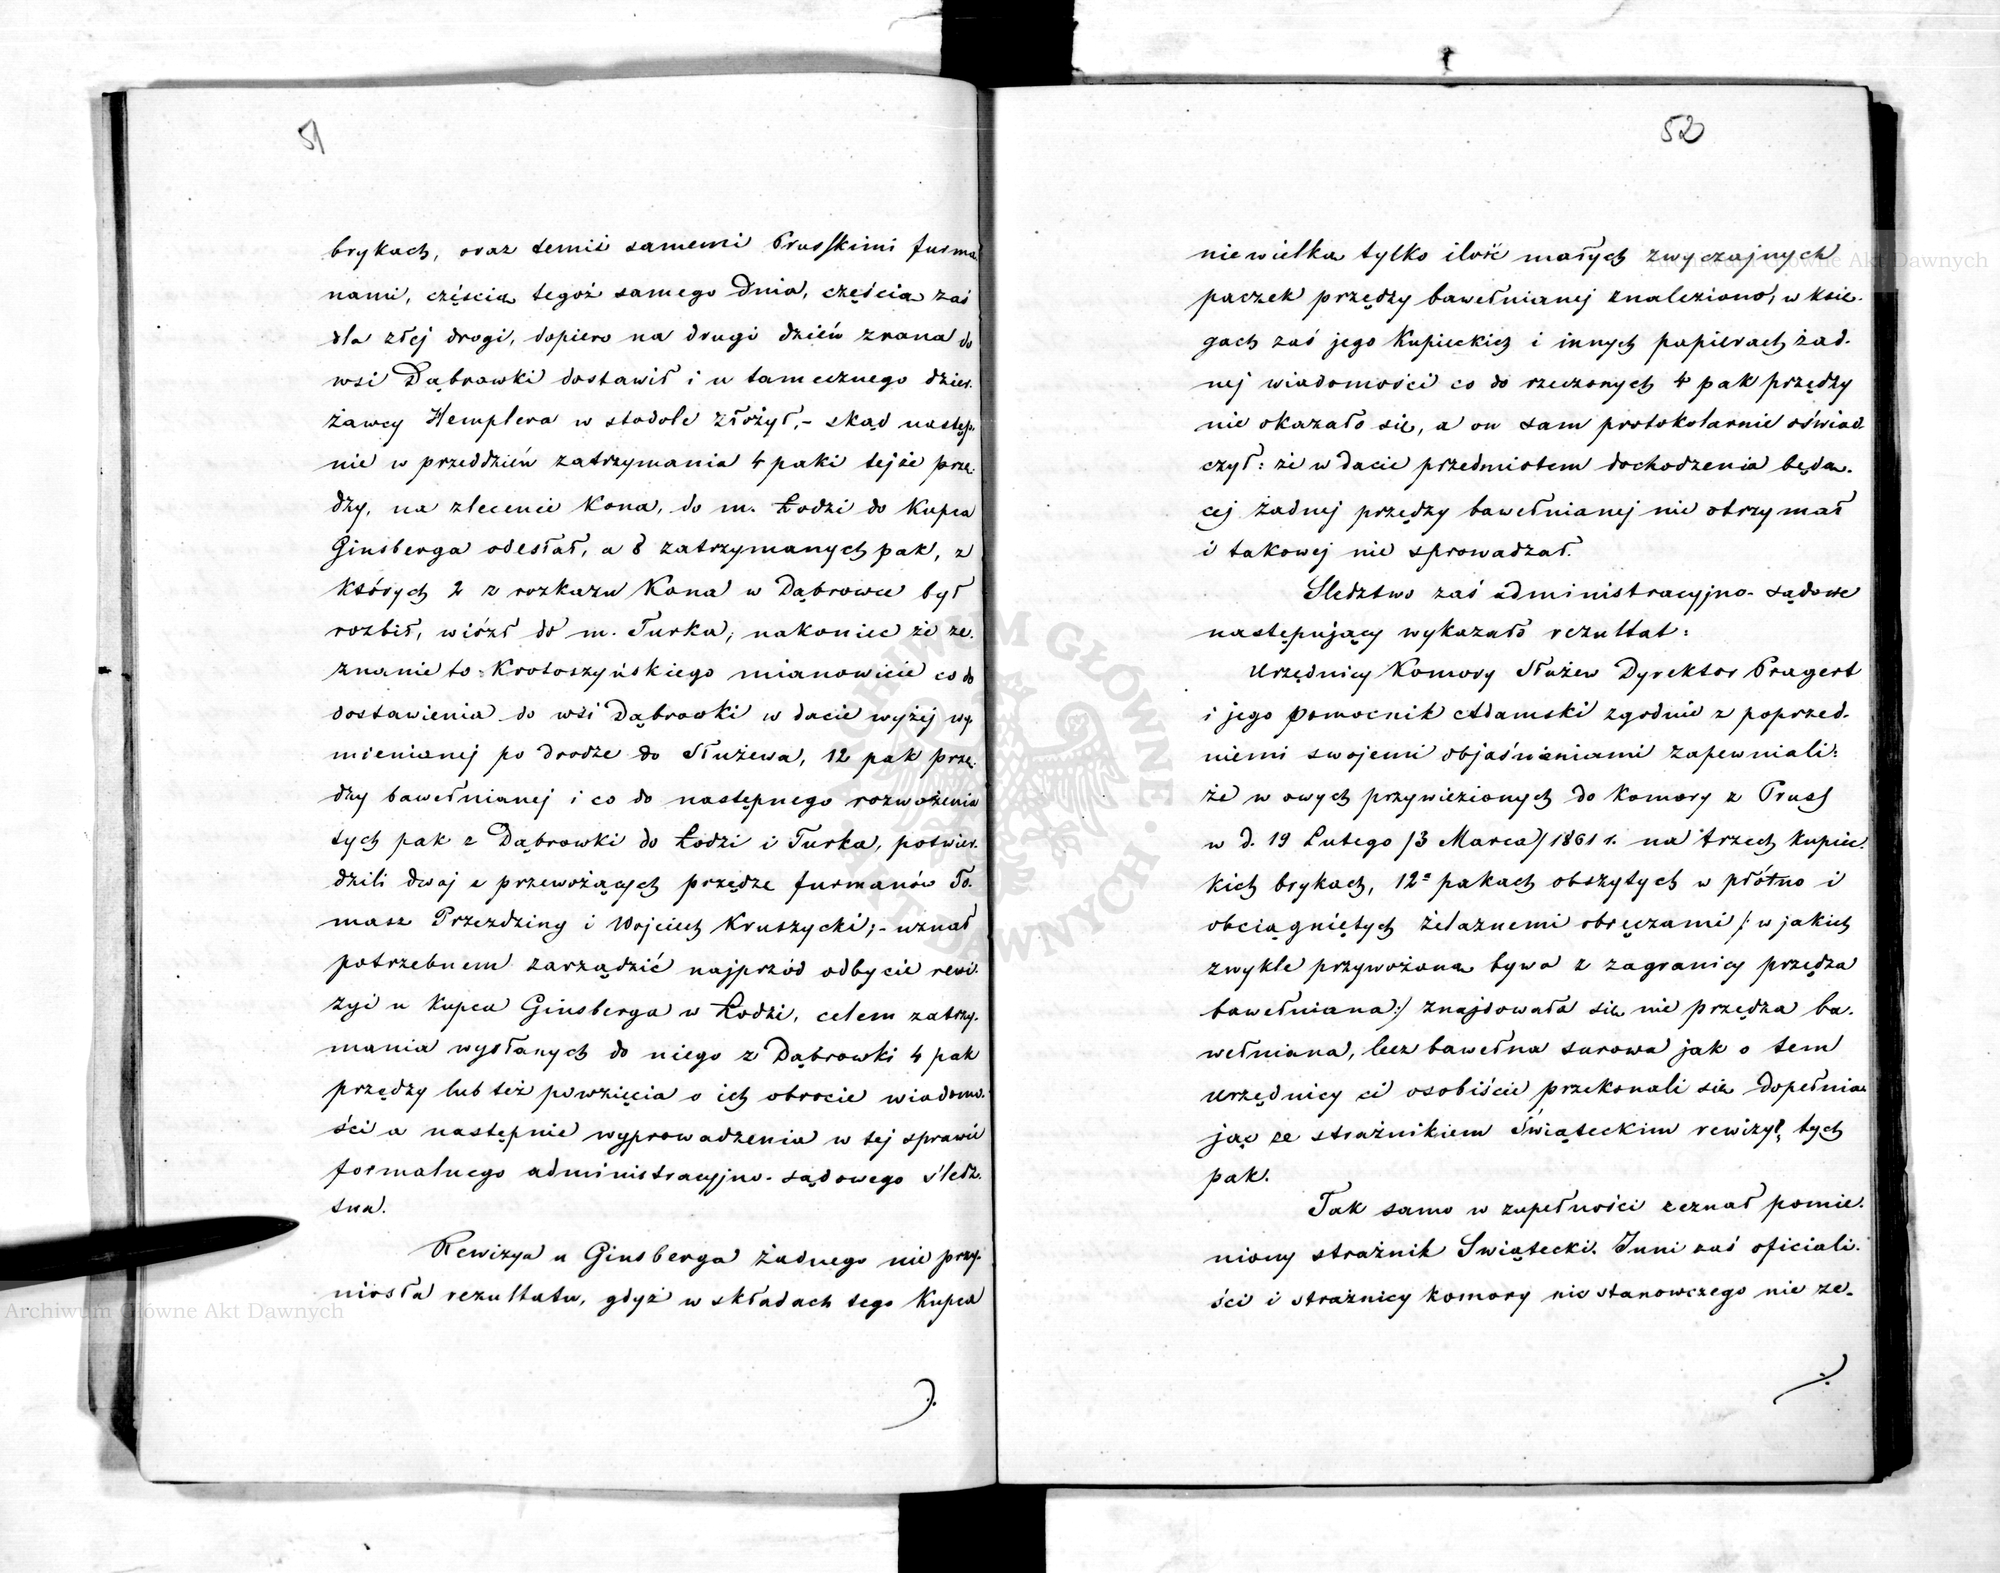 51
brykach, oraz temiż samemi Prusskimi furma
nami, częścią tegoż samego dnia, częścią zaś
dla złej drogi, dopiero na drugi dzień zrana do
wsi Dąbrowki dostawił i u tamecznego dzier.
żawcy Hemplera w stodole złożył,- skąd następ.
nie w przeddzień zatrzymania 4 paki tejże przę.
dzy, na zlecenie Kona, do m. Łodzi do Kupca
Ginsberga odesłał, a 8 zatrzymanych pak, z
których 2 z rozkazu Kona w Dąbrowce był
rozbił, wiózł do m. Turka; nakoniec że ze.
znanie to Krotoszyńskiego mianowicie co do
dostawienia do wsi Dąbrowki w dacie wyżej wy
mienianej po drodze do Służewa, 12 pak przę.
dzy bawełnianej i co do następnego rozwożenia
tych pak z Dąbrowki do Łodzi i Turka, potwier.
dzili dwaj z przewożących przędzę furmanów To.
masz Przezdzing i Wojciech Kruszycki;- uznał
potrzebnem zarządzić najprzód odbycie rewi.
zyi u Kupca Ginsberga w Łodzi, celem zatrzy.
mania wysłanych do niego z Dąbrowki 4 pak
przędzy lub też powzięcia o ich obrocie wiadomo.
ści a następnie wyprowadzenia w tej sprawie
formalnego administracyjno-sądowego śledz.
twa.
Rewizya u Ginsberga żadnego nie przy.
niosła rezultatu, gdyż w składach tego Kupca
52
niewielka tylko ilość małych zwyczajnych
paczek przędzy bawełnianej znaleziono, w księ.
gach zaś jego Kupieckich i innych papierach żad.
nej wiadomości co do rzeczonych 4 pak przędzy
nie okazało się, a on sam protokolarnie oświad
czył: że w dacie przedmiotem dochodzenia będą.
cej żadnej przędzy bawełnianej nie otrzymał
i takowej nie sprowadzał.
Sledztwo zaś administracyjno-sądowe
następujący wykazało rezultat:
Urzędnicy Komory Służew Dyrektor Pragert
i jego pomocnik Adamski zgodnie z poprzed.
niemi swojemi objaśnieniami zapewniali:
że w owych przywiezionych do Komory z Pruss
w d. 19 Lutego /3 Marca/ 1861 r. na trzech kupiec.
kich brykach, 12 pakach obszytych w płótno i
obciągniętych żelaznemi obręczami /: w jakich
zwykle przywożona bywa z zagranicy przędza
bawełniana:/ znajdowała się nie przędza ba.
wełniana, lecz bawełna surowa jak o tem
urzędnicy ci osobiście przekonali się dopełnia
jąc ze strażnikiem Świąteckim rewizyę tych
pak.
Tak samo w zupełności zeznał pomie.
niony strażnik Swiątecki. Inni zaś oficiali.
ści i strażnicy komory nic stanowczego nie ze-
Archiwum Główne Akt Dawnych
Archiwum Główne Akt Dawnych
ARCHIWUM GŁÓWNE AKT DAWNYCH